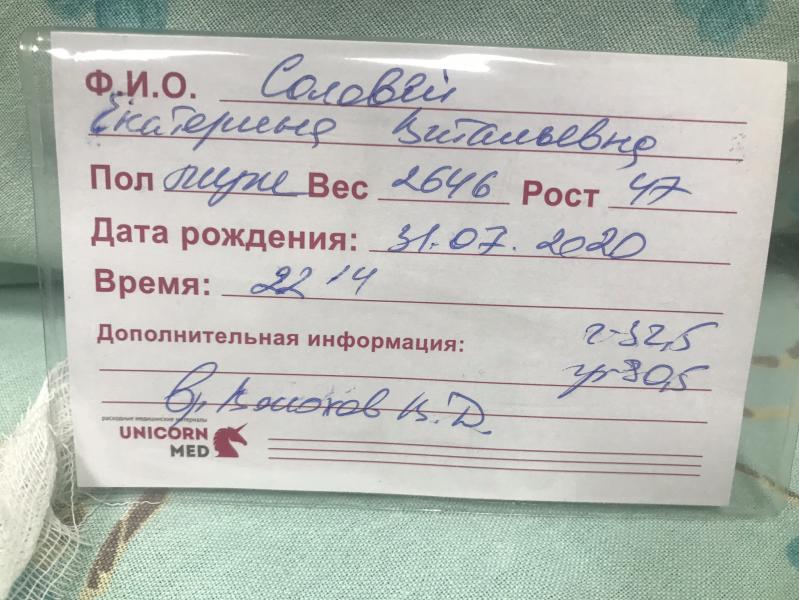 Ф.И.О. Соловей
Екатерина Витальевна
Пол муж Вес 2646 Рост 47
Дата рождения: 31.07.2020
Время: 22 14
Дополнительная информация: г-32,5
гр-30,5
Вр. Волохов В.Д.
расходные медицинские материалы
UNICORN
MED